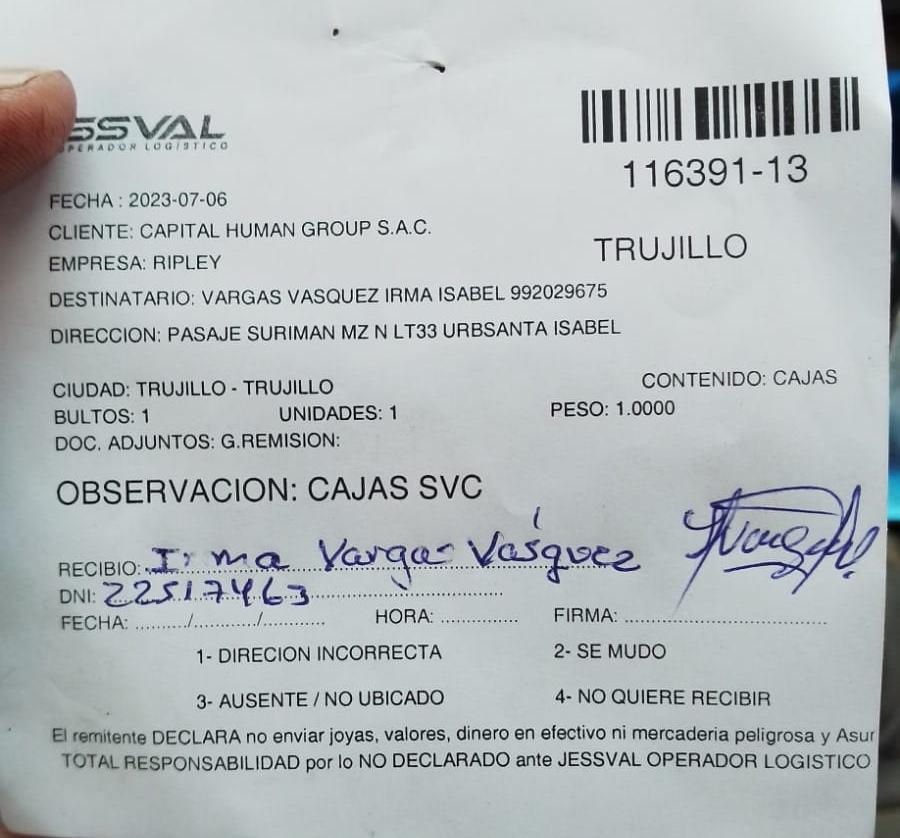 SSVAL
OPERADOR LOGÍSTICO
116391-13
FECHA : 2023-07-06
CLIENTE: CAPITAL HUMAN GROUP S.A.C.
EMPRESA: RIPLEY
TRUJILLO
DESTINATARIO: VARGAS VASQUEZ IRMA ISABEL 992029675
DIRECCION: PASAJE SURIMAN MZ N LT33 URBSANTA ISABEL
CIUDAD: TRUJILLO - TRUJILLO
CONTENIDO: CAJAS
BULTOS: 1 UNIDADES: 1 PESO: 1.0000
DOC. ADJUNTOS: G.REMISION:
OBSERVACION: CAJAS SVC
RECIBIO: Irma Vargas Vásquez
DNI: 22517463
FECHA: ........../.........../........... HORA: ............... FIRMA: .......................................
1- DIRECION INCORRECTA 2- SE MUDO
3- AUSENTE / NO UBICADO 4- NO QUIERE RECIBIR
El remitente DECLARA no enviar joyas, valores, dinero en efectivo ni mercaderia peligrosa y Asur
TOTAL RESPONSABILIDAD por lo NO DECLARADO ante JESSVAL OPERADOR LOGISTICO